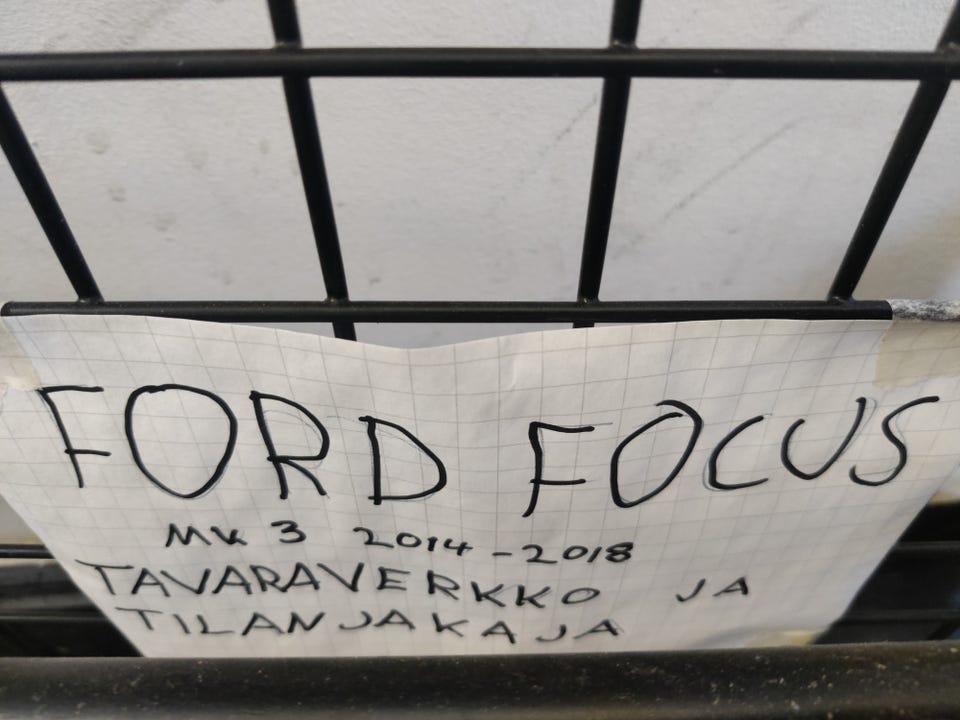 FORD FOCUS
MK 3 2014-2018
TAVARAVERKKO JA
TILANJAKAJA